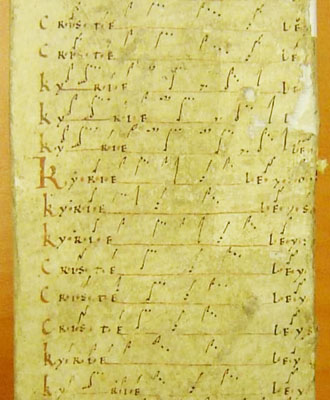 CRISTE LE
CRISTE LE
KYRIE LE
KYRIE L
KYRIE LE
KYRIE LEY
KYRIE LEYS
KYRIE LEY
CRISTE LEY
CRISTE LEY
CRISTE LEY
KYRIE LEY
KYRIE LEY